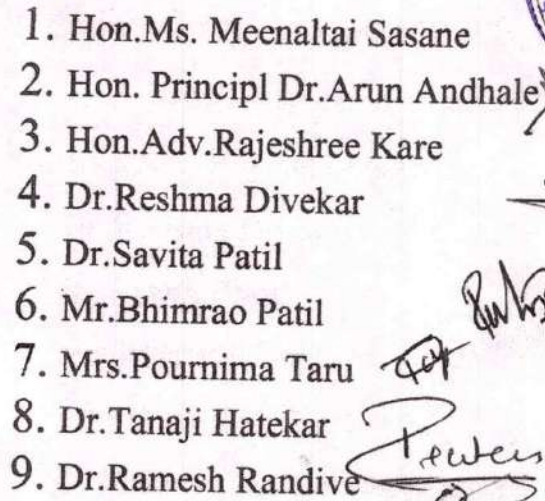 1. Hon.Ms. Meenaltai Sasane
2. Hon. Principl Dr.Arun Andhale
3. Hon.Adv.Rajeshree Kare
4. Dr.Reshma Divekar
5. Dr.Savita Patil
6. Mr.Bhimrao Patil
7. Mrs.Pournima Taru
8. Dr.Tanaji Hatekar
9. Dr.Ramesh Randive